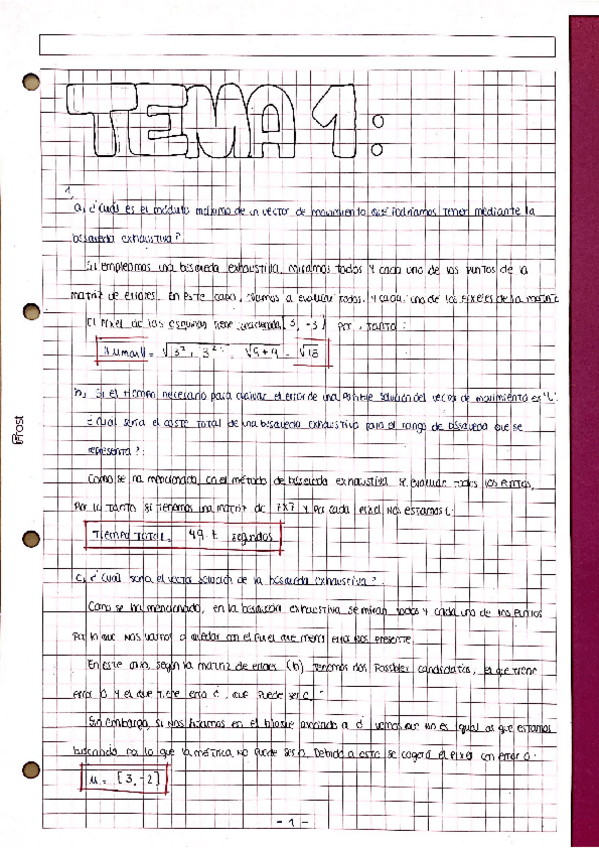 TEMA 1:
1
a) ¿Cuál es el módulo máximo de un vector de movimiento que podríamos tener mediante la
búsqueda exhaustiva?
Si empleamos una búsqueda exhaustiva, miramos todos y cada uno de los puntos de la
matriz de errores. En este caso, vamos a evaluar todos y cada uno de los píxeles de la matriz
El píxel de las esquinas tiene [3, -3] por tanto:
= √3² + 3² = √9+9 = √18
b) Si el tiempo necesario para evaluar el error de una posible solución del vector de movimiento es "t".
¿Cuál sería el coste total de una búsqueda exhaustiva para el rango de búsqueda que se
representa?:
Como se ha mencionado, en el método de búsqueda exhaustiva se evalúan todos los puntos,
Por lo tanto si tenemos una matriz de 7x7 y por cada píxel nos estamos t:
Tiempo total = 49·t segundos
c) ¿Cuál sería el vector solución de la búsqueda exhaustiva?
Como se ha mencionado, en la búsqueda exhaustiva se miran todos y cada uno de los puntos
Por lo que nos vamos a quedar con el píxel que menos error nos presente.
En este caso, según la matriz de errores (b) tenemos dos posibles candidatos, el que tiene
error 0 y el que tiene error que puede ser
Sin embargo, si nos fijamos en el bloque asociado a vemos que no es igual al que estamos
buscando por lo que la métrica no puede ser Debido a esto se cogerá el píxel con error 0:
u = [3, -2]
- 1 -
Frost